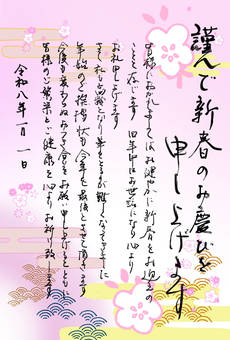 謹んで新春のお慶びを
申し上げます
皆様におかれましてはお健やかに新春をお迎えの
ことと存じます 旧年中はお世話になり心より
お礼申し上げます
さて私も高齢になり筆をとるのが難しくなって
年始のご挨拶状も今年を最後とさせて頂きます
今後も変わらぬお付き合いをお願い申し上げるとともに
皆様のご繁栄とご健康を心よりお祈り致します
令和八年一月一日